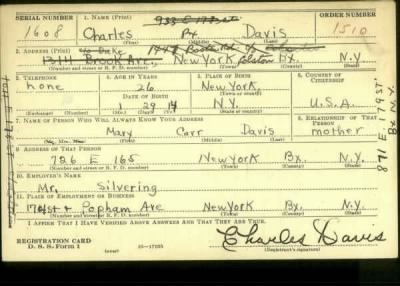 SERIAL NUMBER 1. NAME (Print) ORDER NUMBER
1608 Charles Davis 1510
2. ADDRESS (Print)
1311 Brook Ave, New York Bx. N.Y.
(Number and street or R. F. D. number) (Town) (County) (State)
3. TELEPHONE 4. AGE IN YEARS 5. PLACE OF BIRTH 6. COUNTRY OF CITIZENSHIP
none 26 New York
DATE OF BIRTH (Town or county)
1 29 14 N.Y. U.S.A.
(Mo.) (Day) (Yr.) (State or country)
7. NAME OF PERSON WHO WILL ALWAYS KNOW YOUR ADDRESS 8. RELATIONSHIP OF THAT PERSON
Mary Carr Davis mother
(Mr., Mrs., Miss) (First) (Middle) (Last)
9. ADDRESS OF THAT PERSON
726 E 165 New York Bx. N.Y.
(Number and street or R. F. D. number) (Town) (County) (State)
10. EMPLOYER'S NAME
Mr. Silvering
11. PLACE OF EMPLOYMENT OR BUSINESS
174 st & Popham Ave New York Bx. N.Y.
(Number and street or R. F. D. number) (Town) (County) (State)
I AFFIRM THAT I HAVE VERIFIED ABOVE ANSWERS AND THAT THEY ARE TRUE.
REGISTRATION CARD
D. S. S. Form 1 (over) 16—17105
Charles Davis
(Registrant's signature)
871 E. 179 st.
Bx N.Y.